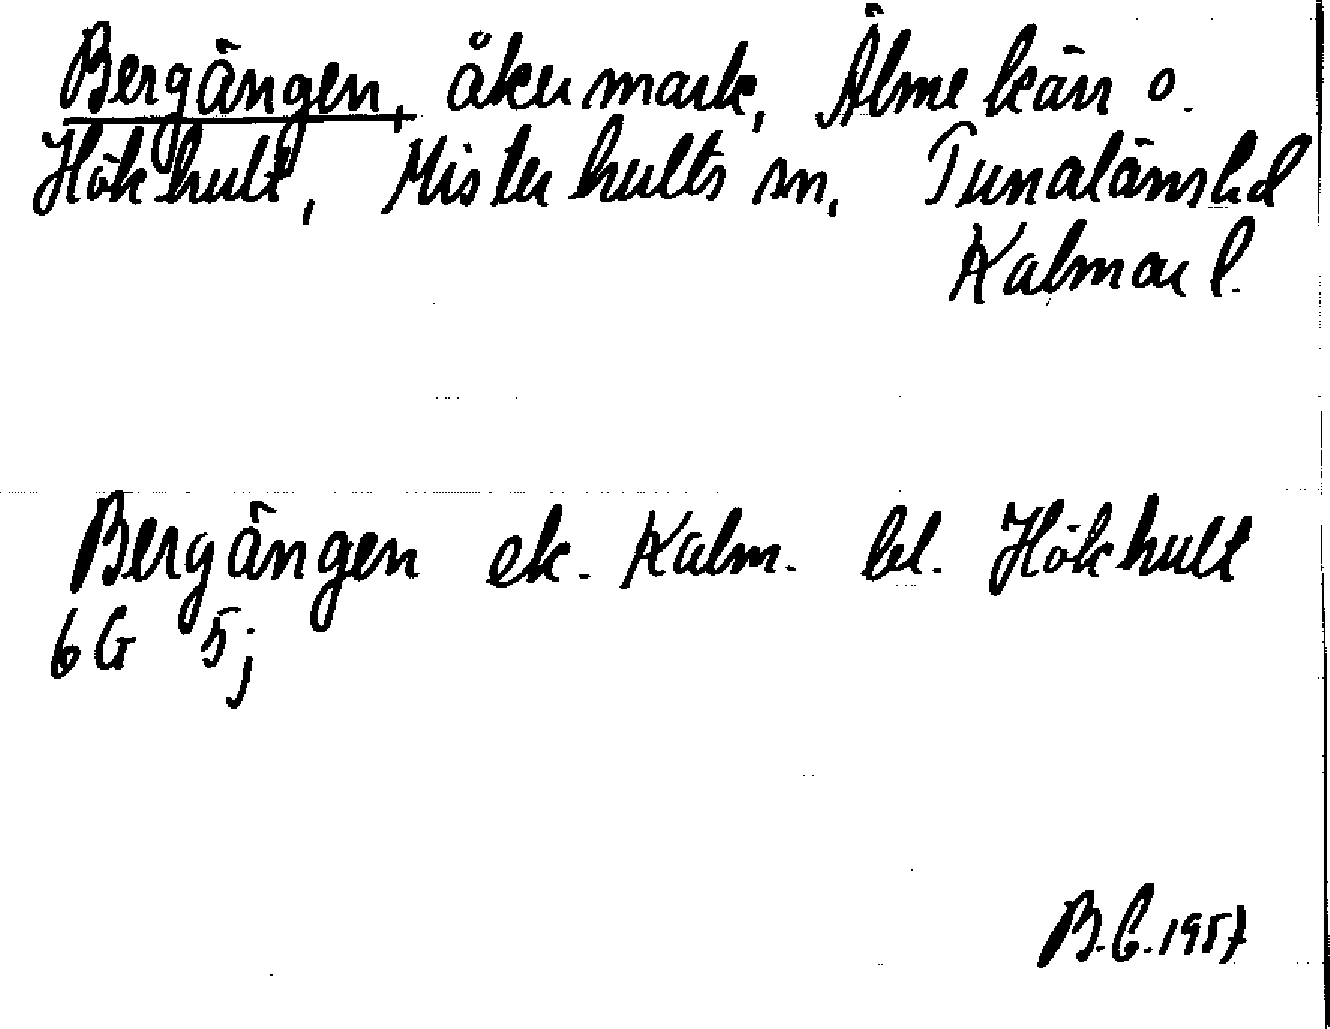 Bergängen, åkermark, Älmekärr o.
Hökhult, Misterhults sn, Tunaläns hd
Kalmar l.
Bergängen ek. Kalm. bl. Hökhult
6G 5j
B.C. 1957